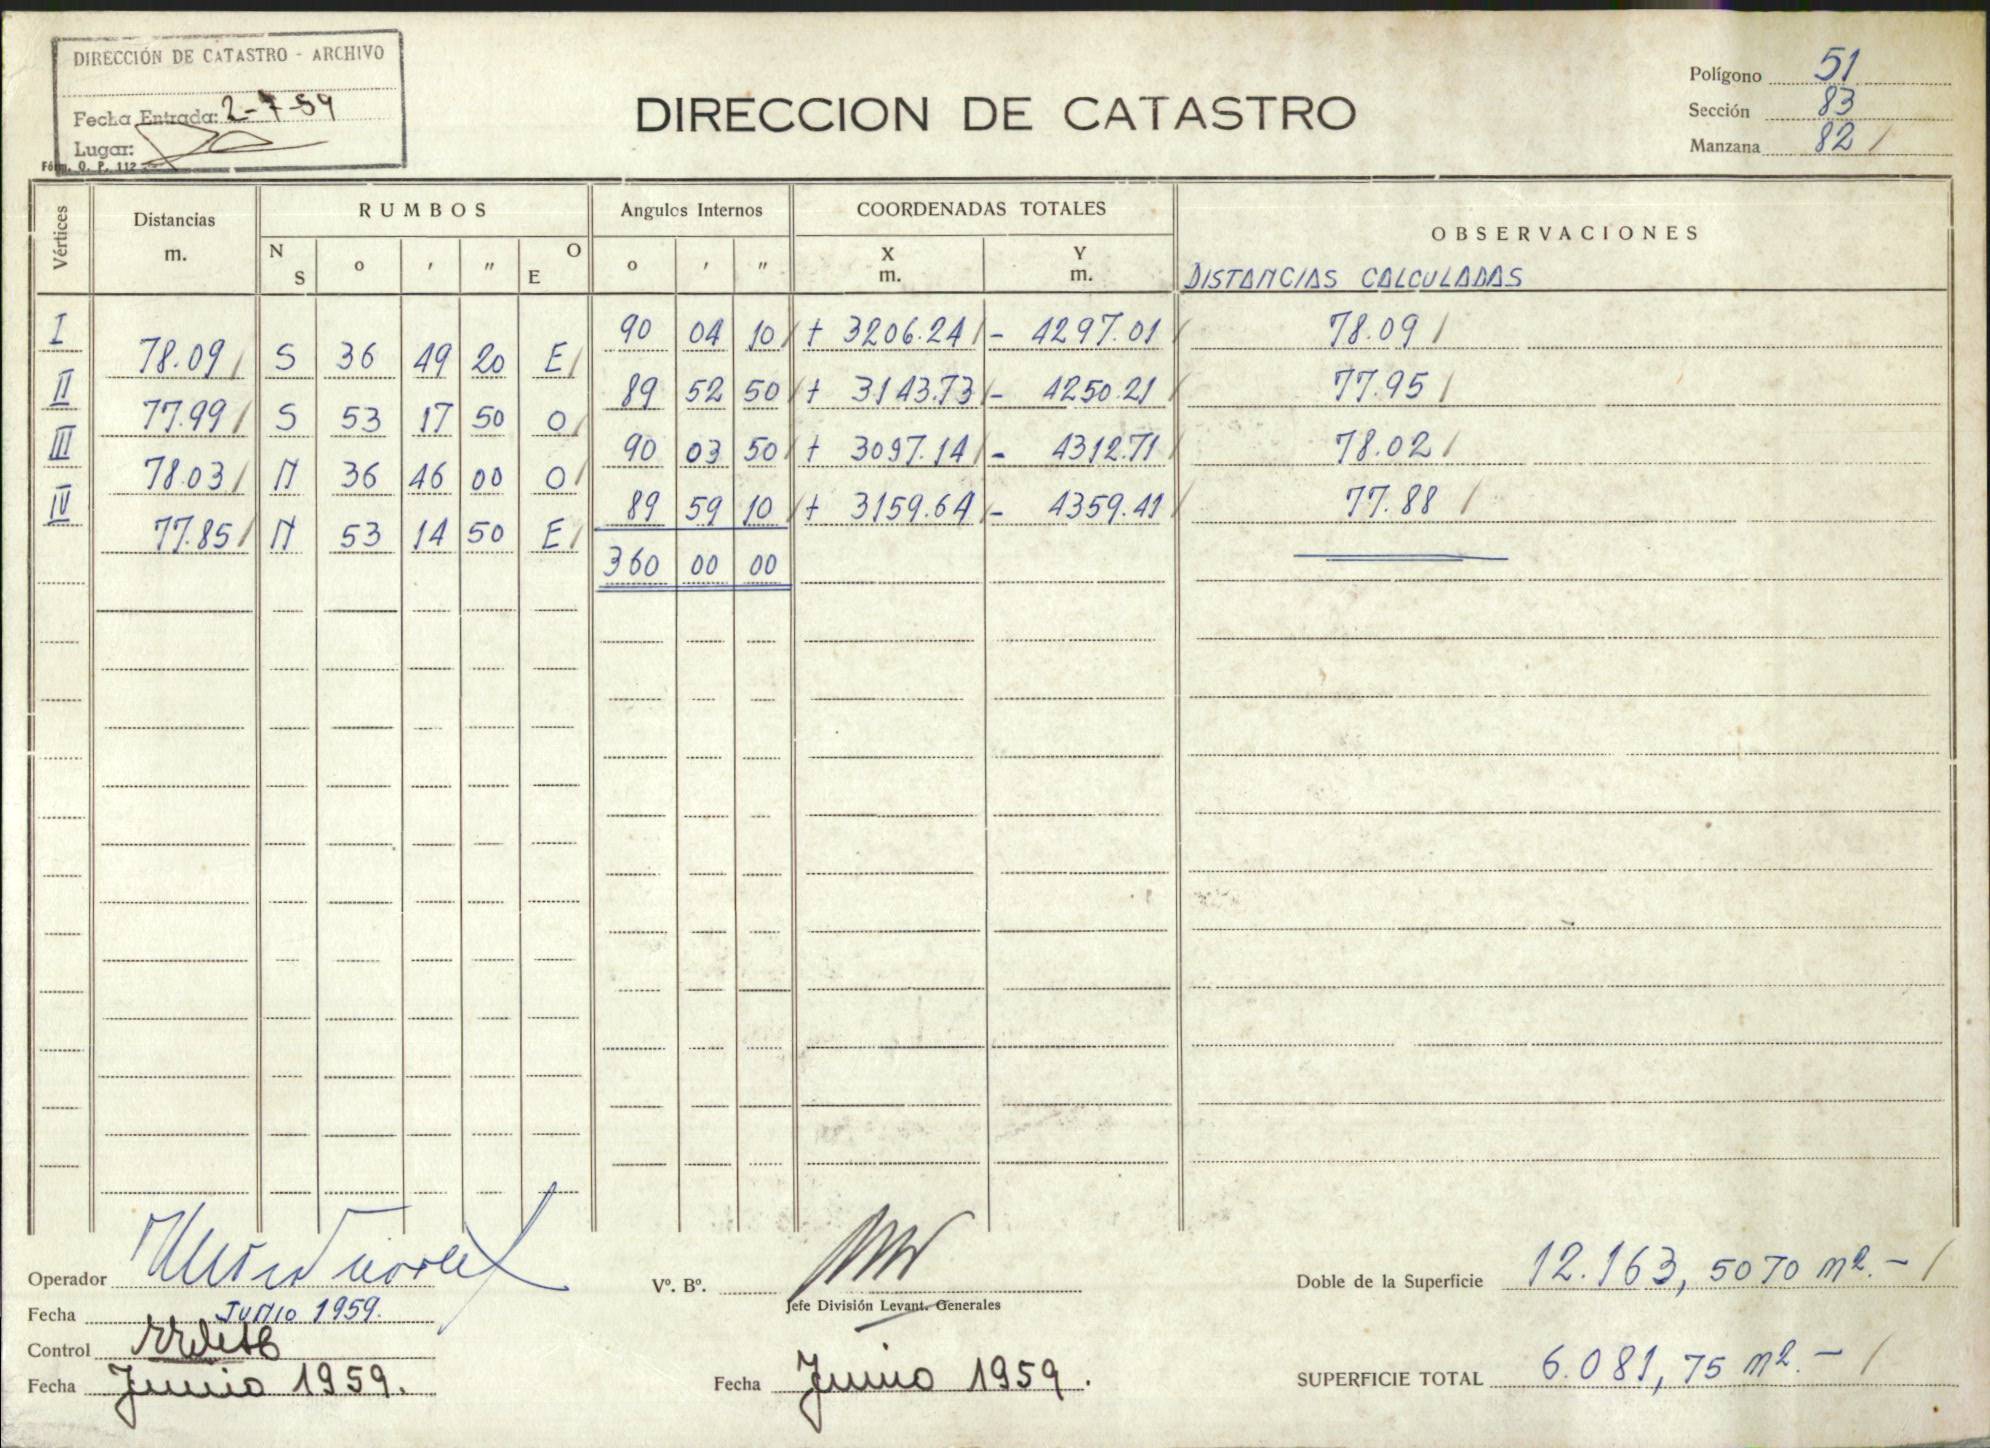 DIRECCIÓN DE CATASTRO - ARCHIVO
Fecha Entrada: 2-7-59
Lugar:
Fórm. O. P. 112
DIRECCION DE CATASTRO
Polígono 51
Sección 83
Manzana 82 /
Vértices
Distancias m.
RUMBOS
N S ° ' " O E
Angulos Internos
° ' "
COORDENADAS TOTALES
X m. Y m.
OBSERVACIONES
DISTANCIAS CALCULADAS
I 90 04 10 / + 3206.24 / - 4297.01 / 78.09 /
78.09 / S 36 49 20 E /
II 89 52 50 / + 3143.73 / - 4250.21 / 77.95 /
77.99 / S 53 17 50 O /
III 90 03 50 / + 3097.14 / - 4312.71 / 78.02 /
78.03 / N 36 46 00 O /
IV 89 59 10 / + 3159.64 / - 4359.41 / 77.88 /
77.85 / N 53 14 50 E /
360 00 00
Operador
Fecha JUNIO 1959.
Control
Fecha Junio 1959.
Vº. Bº.
Jefe División Levant. Generales
Fecha Junio 1959.
Doble de la Superficie 12.163, 5070 m².- /
SUPERFICIE TOTAL 6.081, 75 m².- /